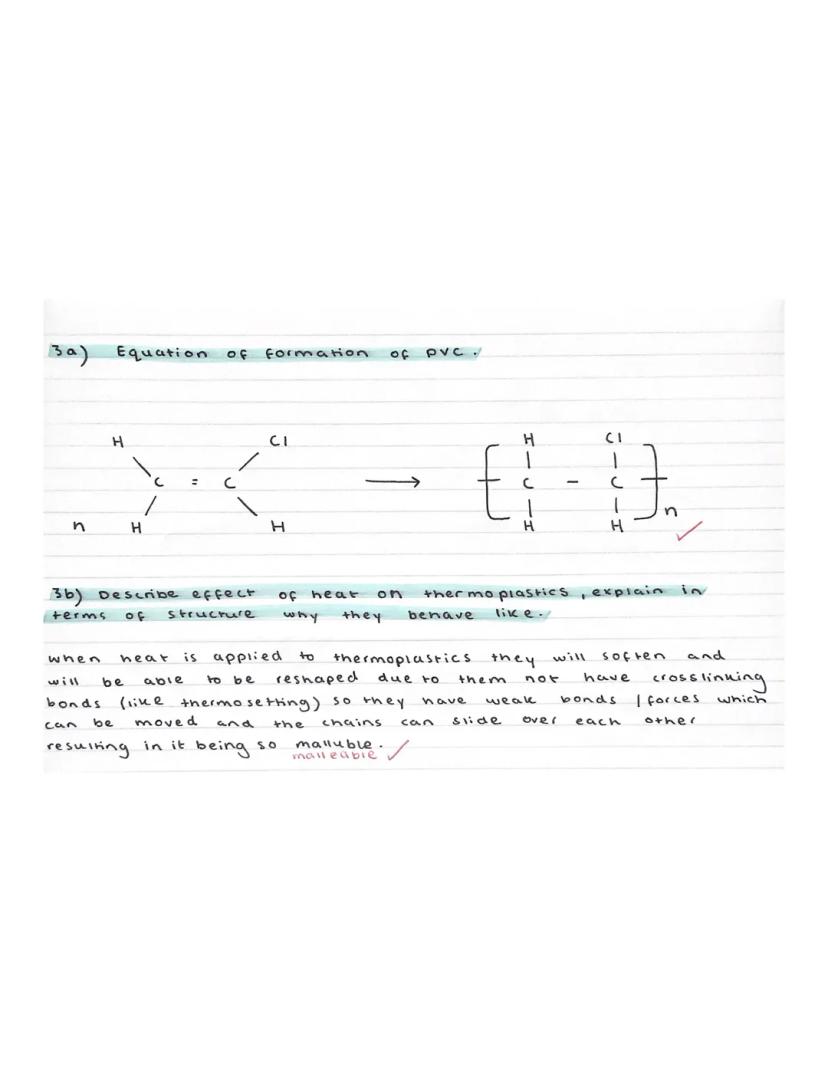 3a) Equation of formation of PVC.
H Cl H Cl
C = C ⟶ C - C
n H H H H n
3b) Describe effect of heat on thermoplastics, explain in
terms of structure why they behave like.
when heat is applied to thermoplastics they will soften and
will be able to be reshaped due to them not have crosslinking
bonds (like thermosetting) so they have weak bonds / forces which
can be moved and the chains can slide over each other
resulting in it being so malluble.
malleable